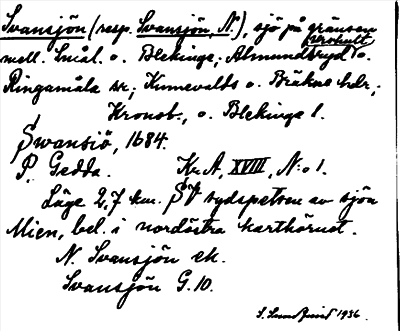 Svansjön (resp. Svansjön, N.), sjö på gränsen
mell. Smål. o. Blekinge; Almundsryd o.
Ringamåla sr; Kinnevalds o. Bräkne hdr;
Kronob., o. Blekinge l.
Swansiö, 1684.
P. Gedda. Kr. A, XVIII, N:o 1.
Läge 2,7 km. SV sydspetsen av sjön
Mien, bel. i nordöstra karthörnet.
N. Svansjön ek.
Svansjön G.10.
1936.